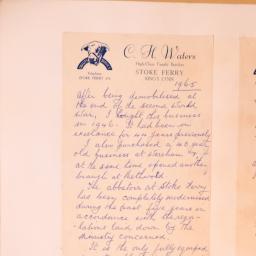 C. H. Waters
High-Class Family Butcher
STOKE FERRY
KING'S LYNN
Telephone
STOKE FERRY
1965
After being demobilised at
the end of the second World
War, I bought the business
in 1946. It had been in
existence for 44 years previously
I also purchased a 40 year
old business at Wereham &
at the same time opened another
branch at Methwold.
The abbatoir at Stoke Ferry
has been completely modernised
during the past five years in
accordance with the regu-
lations laid down by the
Ministry concerned.
It is the only fully equipped